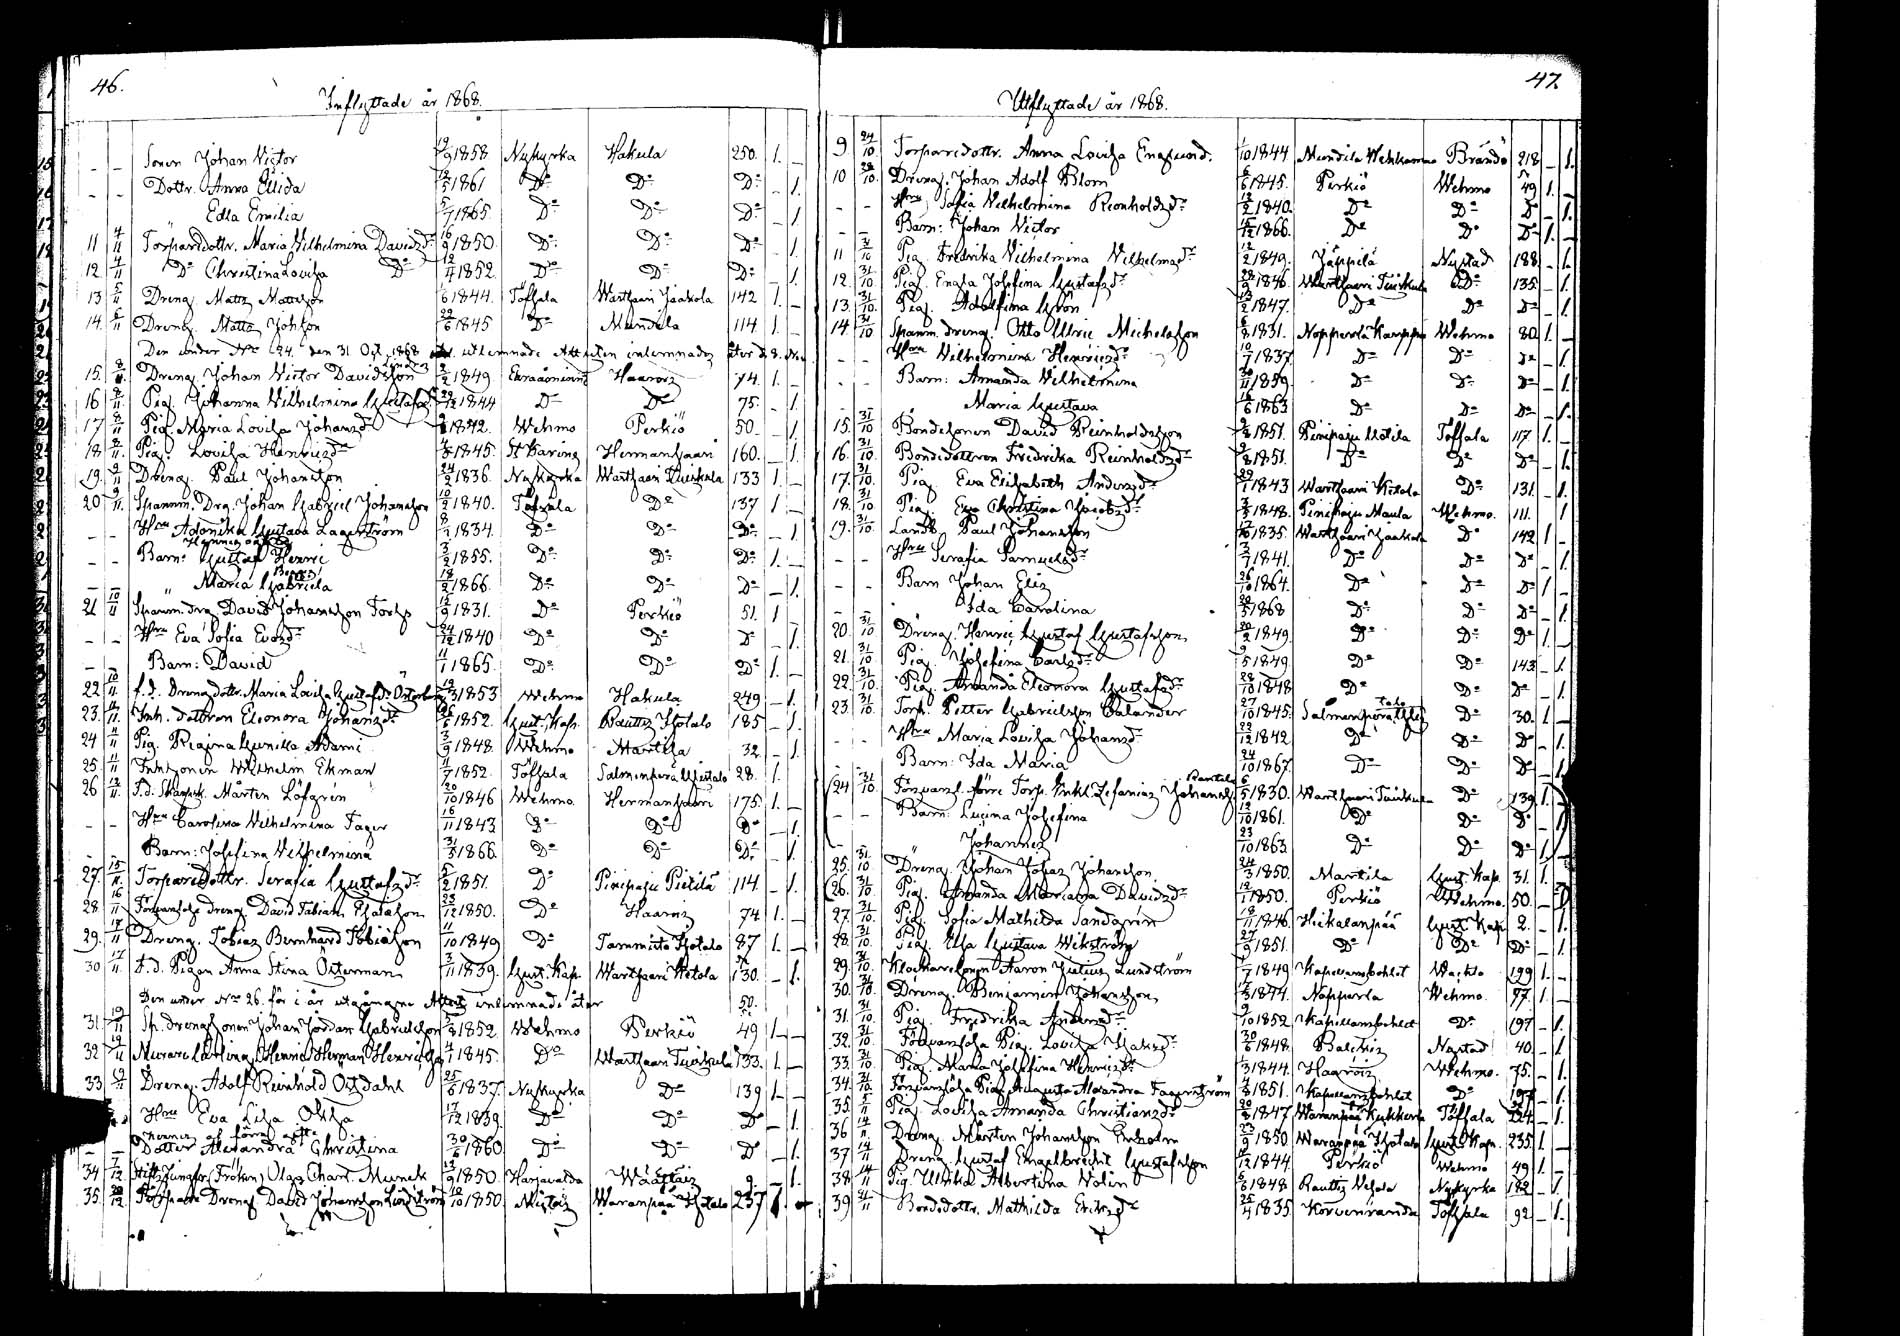 46.
Inflyttade år 1868.
- - Sonen Johan Victor 19/9 1858 Nykyrka Hakula 250. 1. -
- - Dottr. Anna Elida 12/5 1861 Do Do Do - 1.
Edla Emilia 5/7 1865. Do Do Do - 1.
11 4/11 Torparedottr. Maria Wilhelmina Davidsdr 16/9 1850. Do Do Do - 1.
12 4/11 Do Christina Lovisa Do 12/4 1852 Do Do Do - 1.
13 5/11 Dreng. Matts Mattsson 1/6 1844. Töfsala Wartsaari Jaakola 142 1. -
14. 6/11 Dreng. Matts Johsson 22/6 1845 Do Mundila 114 1. -
Den under No 24. den 31 Oct. 1868 utlemnade Attesten inlemnades åter d. 8. Nov.
15. 8/11 Dreng Johan Victor Davidsson 2/2 1849 Euraåminne Haaroiz 74. 1. -
16 8/11 Pig. Johanna Wilhelmina Gustafsdr 29/12 1844 Do Do 75. - 1.
17 8/11 Pig. Maria Lovisa Johansdr 1842. Wehmo Perkiö 50. - 1.
18 8/11 Pig. Lovisa Henricsdr 4/8 1845. St Karins Hermansaari 160. - 1.
19. 9/11 Dreng. Paul Johansson 24/2 1836. Nykyrka Wartsaari Tuiskula 133 1. -
20 9/11 Spanm. Drg. Johan Gabriel Johansson 10/2 1840. Töfsala Do 137 1. -
- - Hru Adonika Gustava Lagerström 8/2 1834. Do Do Do - 1.
- - Barn: Gustaf Henric 3/2 1855. Do Do Do 1. -
" Maria Gabriela 18/2 1866. Do Do Do - 1.
21 10/11 Spanm. drg. David Johansson Forss 12/9 1831. Do Perkiö 51. 1 -
- - Hru Eva Sofia Evasdr 24/12 1840 Do Do Do - 1.
- - Barn: David 11/1 1865. Do Do Do 1. -
22 10/11 f.d. Drengdottr. Maria Lovisa Gustafsdr Österberg 19/3 1853 Wehmo Hakula 249. - 1.
23. 11/11 Inh. dottren Eleonora Johansdr 1852. Gust. Kap. Rautis Ylötalo 185 - 1.
24 11/11 Pig. Regina Gunilla Adami 3/9 1848. Wehmo Mantila 32 - 1.
25 11/11 Inh. sonen Wilhelm Ekman 11/7 1852. Töfsala Salmenperä Ylistalo 28. 1. -
26 12/11 F.d. Skarpsk. Mårten Löfgrén 20/10 1846 Wehmo. Hermansaari 175. 1. -
- - Hru Carolina Wilhelmina Fager 16/11 1843 Do Do Do - 1.
Barn: Josefina Wilhelmina 31/3 1866. Do Do Do - 1.
27. 15/11 Torparedottr. Serafia Gustafsdr 5/2 1851. Do Pinipaju Pietilä 114. - 1.
28 16/11 Försvarslöse dreng. David Fabian Esaiasson 23/12 1850. Do Haaroiz 74 1. -
29. 17/11 Dreng. Tobias Bernhard Tobiasson 11/10 1849 Do Tammisto Ylötalo 87 1. -
30 17/11 F.d. Pigan Anna Stina Österman 3/11 1839. Gust. Kap. Wartsaari Ketola 130. - 1.
Den under No 26. för i år utgångne Attest inlemnade åter 50.
31. 19/11 Sp. drengsonen Johan Jordan Gabrielsson 5/3 1852 Wehmo Perkiö 49 1. -
32 19/11 Murare Lärling Henric Herman Henricsson 4/1 1845. Do Wartsaari Tuiskula 133. 1. -
33. 19/11 Dreng. Adolf Reinhold Östdahl 25/6 1837. Nykyrka Do 139 1. -
Hru Eva Lisa Ohlsa 17/12 1839. Do Do Do - 1.
- - Dotter Alexandra Christina 30/6 1860 Do Do Do - 1.
34 7/12 Stifts Jungfr. (Fröken) Olga Charl. Munck 13/9 1850. Harjavalda Wääräis 9. - 1.
35. 20/12 Torpare Dreng David Johansson Lindström 10/10 1850. Mistois Waranpää Ylötalo 237 1. -
47.
Utflyttade år 1868.
9 24/10 Torparedottr. Anna Lovisa Englund. 1/10 1844 Mundila Wehkamaa Brändö 218 - 1.
10 28/10 Dreng. Johan Adolf Blom 6/6 1845. Perkiö Wehmo 49 1. -
- - Hru Sofia Wilhelmina Reinholdsdr 12/2 1840. Do Do Do - 1.
- - Barn: Johan Victor 15/12 1866. Do Do Do 1. -
11 31/10 Pig. Fredrika Wilhelmina Wilhelmsdr 12/2 1849. Jäppilä Nystad 188. - 1.
12. 31/10 Pig. Engla Josefina Gustafsdr 28/9 1846. Wartsaari Tuiskula Do 135. - 1.
13. 31/10 Pig. Adolfina Grön 13/2 1847. Do Do Do - 1.
14 31/10 Spanm. dreng. Otto Ulric Michelsson 6/8 1831. Nopperla Karppu Wehmo 80 1. -
- - Hru Wilhelmina Henricsdr 10/7 1837. Do Do Do - 1.
- - Barn: Amanda Wilhelmina 30/11 1859. Do Do Do - 1.
Maria Gustava 16/6 1863 Do Do Do - 1.
15. 31/10 Bondesonen David Reinholdsson 9/8 1851. Pinipaju Uotila Töfsala 117. 1. -
16. 31/10 Bondedottren Fredrika Reinholdsdr 9/8 1851. Do Do Do - 1.
17. 31/10 Pig. Eva Elisabeth Andersdr 29/1 1843 Wartsaari Ketola Do 131. - 1.
18. 31/10 Pig. Eva Christina Jacobsdr 3/3 1848. Pinipaju Maula Wehmo. 111. 1.
19. 31/10 Landb. Paul Johansson 1835. Wartsaari Jaakola Do 142 1. -
- - Hru Serafia Samuelsdr 3/7 1841. Do Do Do - 1.
- - Barn Johan Elis 26/10 1864. Do Do Do 1. -
Ida Carolina 20/3 1868 Do Do Do - 1.
20. 31/10 Dreng. Henric Gustaf Gustafsson 20/2 1849. Do Do Do 1. -
21. 31/10 Pig. Josefina Carlsdr 9/5 1849. Do Do 143 - 1.
22. 31/10 Pig. Amanda Eleonora Gustafsdr 28/10 1848 Do Do Do - 1.
23. 31/10 Torp. Petter Gabrielsson Calander 27/10 1845. Salmenperä Ylistalo Do 30. 1. -
- - Hru Maria Lovisa Johansdr 22/12 1842 Do Do Do - 1.
Barn: Ida Maria 24/10 1867. Do Do Do - 1.
(24 31/10 Försvarsl. förre Torp. Enkl. Zefanias Johansson Rantala 6/5 1830. Wartsaari Tuiskula Do 139. 1. -
- - Barn: Lucina Josefina 12/10 1861. Do Do Do - 1.
Johannes 23/10 1863 Do Do Do 1. -
25. 31/10 Dreng. Johan Jonas Johansson. 24/3 1850. Mantila Gust. Kap. 31. 1. -
(26. 31/10 Pig. Amanda Mariana Davidsdr 12/1 1850. Perkiö Wehmo. 50. - 1.
27. 31/10 Pig. Sofia Mathilda Sandgrén 18/11 1846. Hiekalanpää Gust. Kap. 2. - 1.
28. 31/10 Pig. Elsa Gustava Wikström 27/9 1851. Do Do Do - 1.
29. 31/10 Klockaresonen Aaron Julius Lundström 1/7 1849. Kapellansbohlet Wichtis 199 1. -
30. 31/10 Dreng. Benjamin Johansson 17/3 1844. Nopperla Wehmo. 77. 1. -
31. 31/10 Pig. Fredrika Andersdr 9/10 1852 Kapellansbohlet Do 197 - 1.
32. 31/10 Försvarslösa Pig. Lovisa Isaksdr 30/6 1848. Balckis Nystad 40. - 1.
33. 31/10 Pig. Maria Josefina Henricsdr 1/3 1844. Haaroiz Wehmo. 75. - 1.
34. 31/10 Försvarslösa Pig. Augusta Alexandra Fagerström 4/8 1851. Kapellansbohlet Do 197 - 1.
35. 5/11 Pig. Lovisa Amanda Christiansdr 20/8 1847 Waranpää Kykkerla Töfsala 224. - 1.
36 12/11 Dreng. Mårten Johansson Enholm 23/9 1850 Waranpää Ylötalo Gust. Kap. 235. 1. -
37 14/11 Dreng. Gustaf Engelbrecht Gustafsson 1/12 1844. Perkiö Wehmo 49 1. -
38 14/11 Pig. Ulrika Albertina Nolin 6/6 1848 Rautis Uhala Nykyrka 182 - 1.
39 21/11 Bondedottr. Mathilda Ericsdr 25/4 1835 Korvenranda Töfsala 92 - 1.